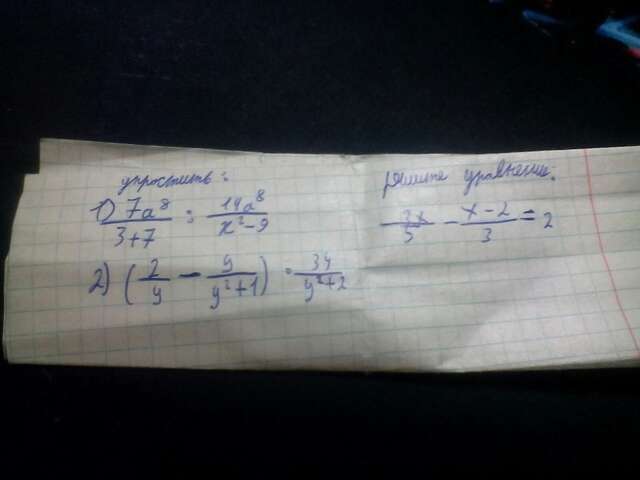 упростить:
1) 7a⁸/(3+7) : 14a⁸/(x²-9)
2) (2/y - y/(y²+1)) · 34/(y²+2)
решите уравнение:
/5 - (x-2)/3 = 2